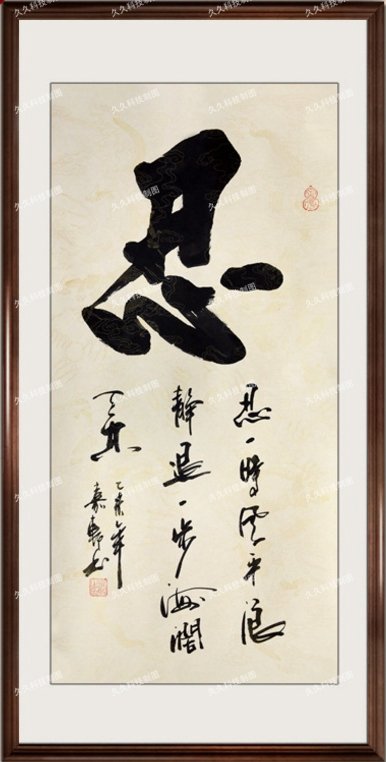 忍
忍一時风平浪
靜退一步海闊
天空
乙未年
嘉书
久久科技制图